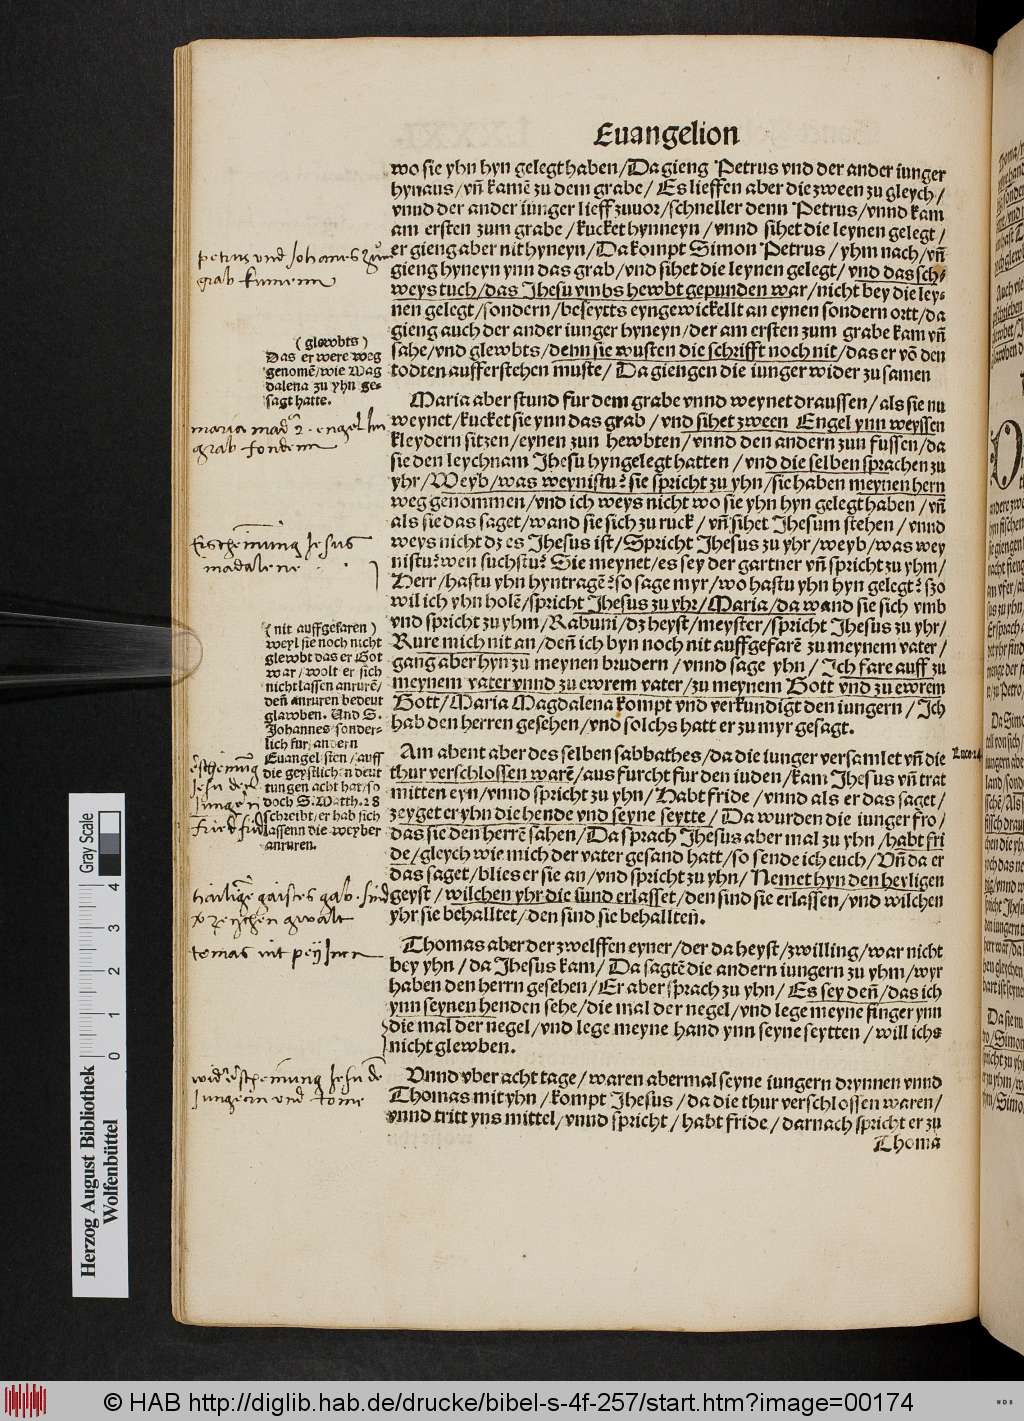 Euangelion
wo sie yhn hyn gelegt haben/Da gieng Petrus vnd der ander iunger
hynaus/vn̄ kamē zu dem grabe/Es lieffen aber die zween zu gleych/
vnnd der ander iunger lieff zuuor/schneller denn Petrus/vnnd kam
am ersten zum grabe/kucket hynneyn/vnnd sihet die leynen gelegt/
er gieng aber nit hyneyn/Da kompt Simon Petrus/yhm nach/vn̄
gieng hyneyn ynn das grab/vnd sihet die leynen gelegt/vnd das sch-
weys tuch/das Jhesu vmbs hewbt gepunden war/nicht bey die ley-
nen gelegt/sondern/beseytts eyngewickellt an eynen sondern ortt/da
gieng auch der ander iunger hyneyn/der am ersten zum grabe kam vn̄
sahe/vnd glewbts/denn sie wusten die schrifft noch nit/das er vō den
todten aufferstehen muste/Da giengen die iunger wider zu samen
Maria aber stund fur dem grabe vnnd weynet draussen/als sie nu
weynet/kucket sie ynn das grab/vnd sihet zween Engel ynn weyssen
kleydern sitzen/eynen zun hewbten/vnnd den andern zun fussen/da
sie den leychnam Jhesu hyngelegt hatten/vnd die selben sprachen zu
yhr/Weyb/was weynistu? sie spricht zu yhn/sie haben meynen hern
weg genommen/vnd ich weys nicht wo sie yhn hyn gelegt haben/vn̄
als sie das saget/wand sie sich zu ruck/vn̄ sihet Jhesum stehen/vnnd
weys nicht dz es Jhesus ist/Spricht Jhesus zu yhr/weyb/was wey
nistu? wen suchstu? Sie meynet/es sey der gartner vn̄ spricht zu yhm/
Herr/hastu yhn hyntragē? so sage myr/wo hastu yhn hyn gelegt? szo
wil ich yhn holē/spricht Jhesus zu yhr/Maria/da wand sie sich vmb
vnd spricht zu yhm/Rabuni/dz heyst/meyster/spricht Jhesus zu yhr/
Rure mich nit an/den̄ ich byn noch nit auffgefarē zu meynem vater/
gang aber hyn zu meynen brudern/vnnd sage yhn/Ich fare auff zu
meynem vater vnnd zu ewrem vater/zu meynem Gott vnd zu ewrem
Gott/Maria Magdalena kompt vnd verkundigt den iungern/Ich
hab den herren gesehen/vnd solchs hatt er zu myr gesagt.
Am abent aber des selben sabbathes/da die iunger versamlet vn̄ die
thur verschlossen warē/aus furcht fur den iuden/kam Jhesus vn̄ trat
mitten eyn/vnnd spricht zu yhn/Habt fride/vnnd als er das saget/
zeyget er yhn die hende vnd seyne seytte/Da wurden die iunger fro/
das sie den herrē sahen/Da sprach Jhesus aber mal zu yhn/habt fri
de/gleych wie mich der vater gesand hatt/so sende ich euch/Vn̄ da er
das saget/blies er sie an/vnd spricht zu yhn/Nemet hyn den heyligen
geyst/wilchen yhr die sund erlasset/den sind sie erlassen/vnd wilchen
yhr sie behalltet/den sind sie behallten̄.
Thomas aber der zwelffen eyner/der da heyst/zwilling/war nicht
bey yhn/da Jhesus kam/Da sagtē die andern iungern zu yhm/wyr
haben den herrn gesehen/Er aber sprach zu yhn/Es sey den̄/das ich
ynn seynen henden sehe/die mal der negel/vnd lege meyne finger ynn
die mal der negel/vnd lege meyne hand ynn seyne seytten/will ichs
nicht glewben.
Vnnd vber acht tage/waren abermal seyne iungern drynnen vnnd
Thomas mit yhn/kompt Jhesus/da die thur verschlossen waren/
vnnd tritt yns mittel/vnnd spricht/habt fride/darnach spricht er zu
Thoma
petrus vnd Johanes zum
grab kumenn
(glewbts)
Das er were weg
genomē/wie Mag
dalena zu yhn ge-
sagt hatte.
maria mad 2 engel im
grab
Erscheinung Jesus
madalene
(nit auffgefaren)
weyl sie noch nicht
glewbt das er Got
war/wolt er sich
nicht lassen anrurē/
den̄ anruren bedeut
glawben. Und S.
Johannes sonder-
lich fur andern
Euangelisten/auff
die geystlichen deut
tungen acht hat/so
doch S. Matth. 28
schreibt/er hab sich
lassenn die weyber
anruren.
erscheinung
Jesu den
Jungern
heiliger gaistes gab
tomas nit
wider erscheinung Jesu den
Jungern vnd tome
Luce 24
Herzog August Bibliothek
Wolfenbüttel
0 1 2 3 4
Gray Scale
© HAB http://diglib.hab.de/drucke/bibel-s-4f-257/start.htm?image=00174